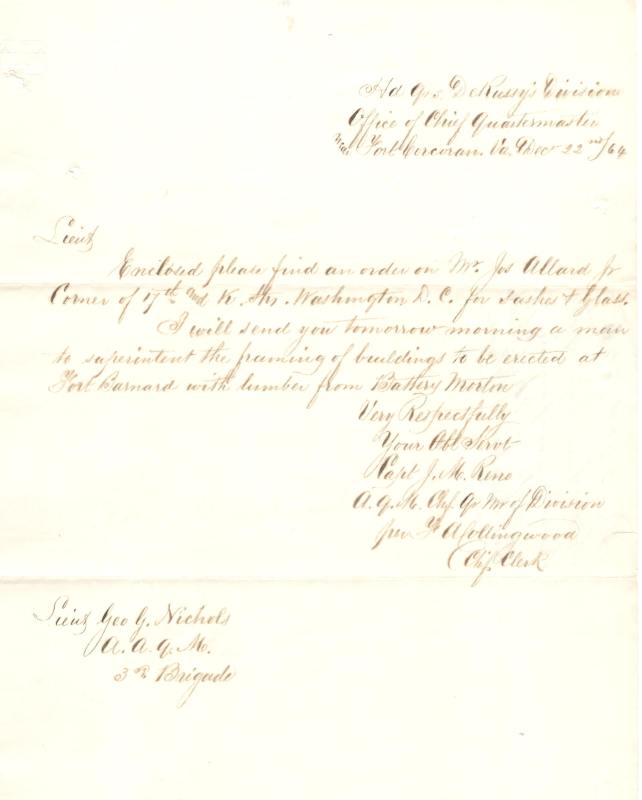 Hd Qrs DeRussy's Division
Office of Chief Quartermaster
near Fort Corcoran. Va. Dec 22nd/64
Lieut
Enclosed please find an order on Mr. Jos Allard Jr
Corner of 17th and K. Sts. Washington D. C. for sashes & Glass.
I will send you tomorrow morning a man
to superintent the framing of buildings to be erected at
Fort Barnard with lumber from Battery Morton
Very Respectfully
Your Obt Servt
Capt J. M. Reno
A. Q. M. Chf. Qr Mr of Division
per A Collingwood
Chf. Clerk
Lieut Geo G. Nichols
A. A. Q. M.
3rd Brigade